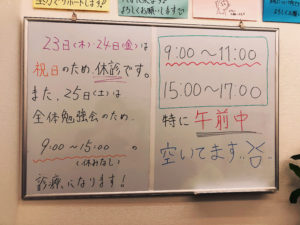 23日(木)・24日(金)は
祝日のため、休診です。
また、25日(土)は
全体勉強会のため、
9:00～15:00 の
(休みなし)
診療になります!
9:00～11:00
15:00～17:00
特に 午前中
空いてます..